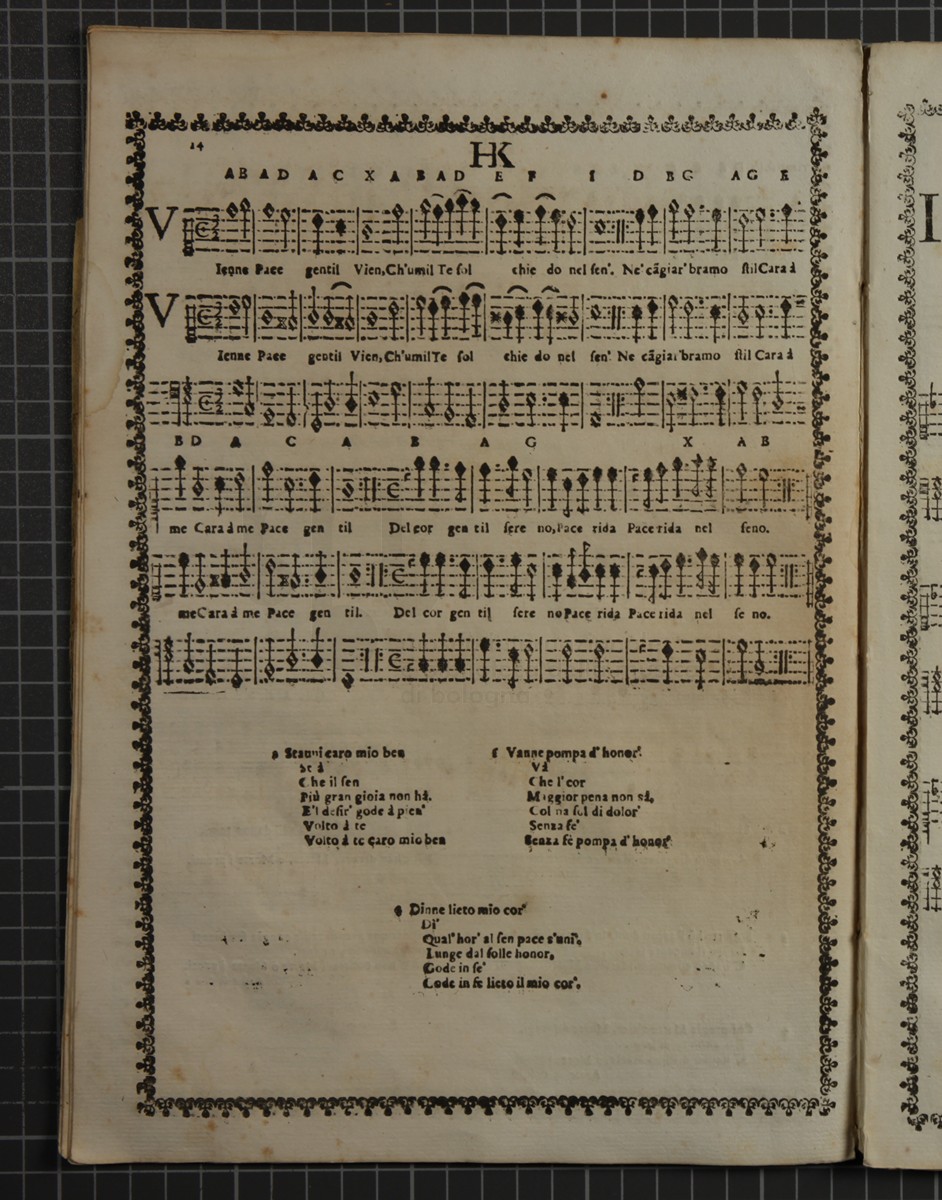 14
HK
A B A D A C X A B A D E F I D B G A G E
V
Ienne Pace gentil Vien, Ch'umil Te sol chie do nel sen'. Ne' cãgiar' bramo stil Cara à
V
Ienne Pace gentil Vien, Ch'umil Te sol chie do nel sen' Ne cãgiar' bramo stil Cara à
B D A C A B A G X A B
me Cara à me Pace gen til Del cor gen til sere no, Pace rida Pace rida nel seno.
me Cara à me Pace gen til. Del cor gen til sere no Pace rida Pace rida nel se no.
Stanni caro mio ben
St à
Che il sen
Più gran gioia non hà.
E'l desir' gode à pien'
Volto à te
Volto à te caro mio ben
Vanne pompa d' honor'.
Và
Che l' cor
Maggior pena non sà,
Col na sol di dolor'
Senza fe'
Senza fè pompa d' honor'
Dinne lieto mio cor'
Di'
Qual' hor' al sen pace s'unì,
Lunge dal folle honor,
Gode in se'
Gode in se lieto il mio cor'.